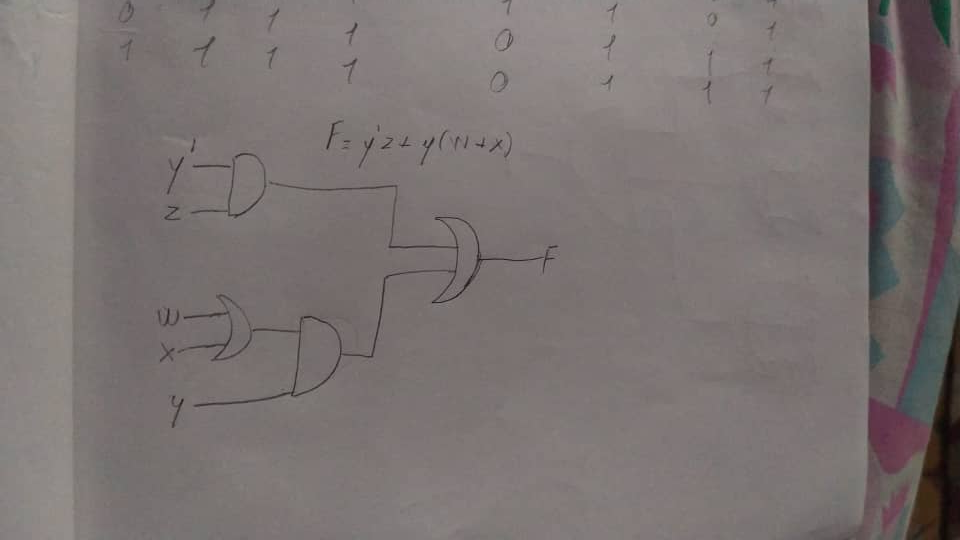 0 1 1 1 1 0 1
1 1 1 1 0 1 1 1
1 0 1 1 1
F = y'z + y(w+x)
y'
z
F
w
x
y